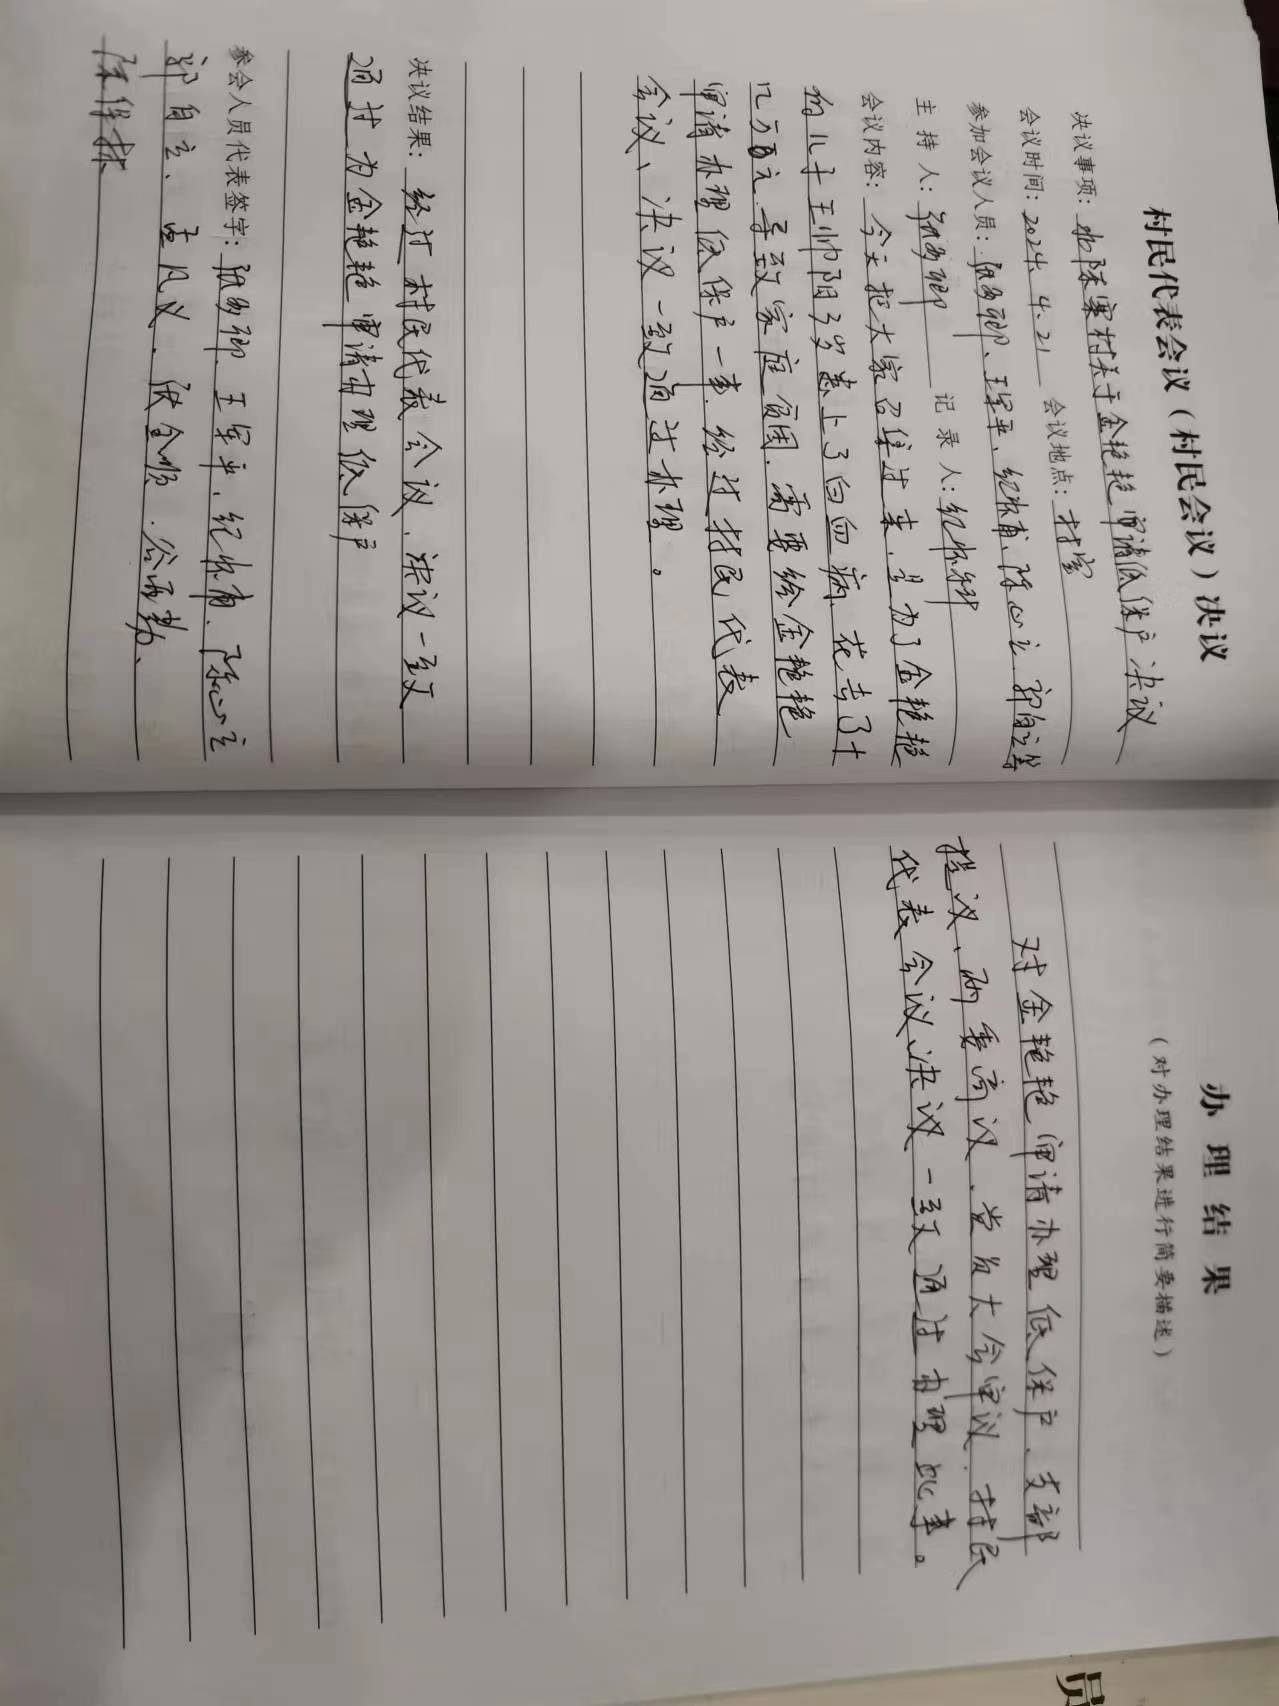 村民代表会议（村民会议）决议
决议事项：陈寨村关于金艳艳申请低保户决议
会议时间：2024.4.21 会议地点：村室
参加会议人员：王军平、纪怀甫、陈心立、郭自立等
主 持 人： 记 录 人：纪怀
会议内容：今天把大家召集过来，是为了金艳艳
的儿子王帅阳3岁患上了白血病，花去了十
几万元，导致家庭贫困，需要给金艳艳
申请办理低保户一事，经过村民代表
会议、决议一致通过办理。
决议结果：经过村民代表会议、决议一致
通过为金艳艳申请办理低保户
参会人员代表签字：王军平、纪怀甫、陈心立
郭自立、孟凡义、
陈保林
办理结果
（对办理结果进行简要描述）
对金艳艳申请办理低保户、支部
提议、两委商议、党员大会审议、村民
代表会议决议一致通过办理此事。
员